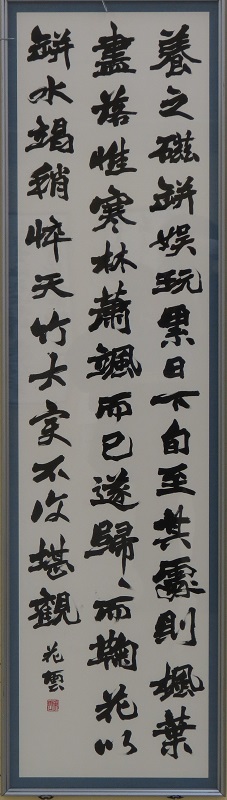 養之磁缾娯玩累日下旬至其處則楓葉
盡落惟寒林蕭颯而已遂歸々而鞠花以
缾水竭稍悴天竹大実不復堪觀
花雲